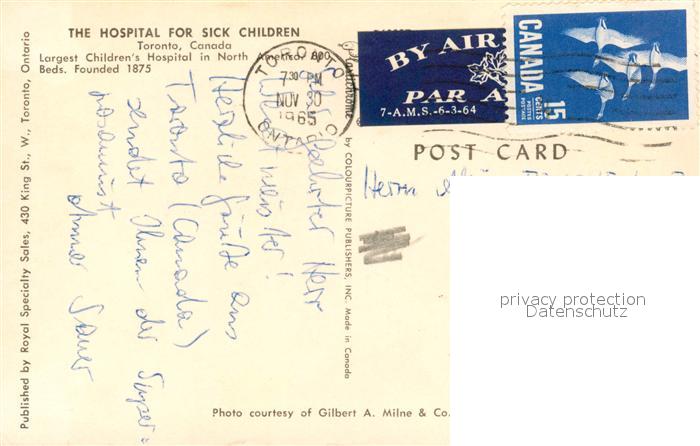 THE HOSPITAL FOR SICK CHILDREN
Toronto, Canada
Largest Children's Hospital in North America. 800
Beds. Founded 1875
Published by Royal Specialty Sales, 430 King St., W., Toronto, Ontario
TORONTO
7 30 PM
NOV 30
1965
ONTARIO
BY AIR
PAR A
7-A.M.S.-6-3-64
CANADA
15
cents
POSTES
POSTAGE
POST CARD
by COLOURPICTURE PUBLISHERS, INC. Made in Canada
Herrn
Sehr geehrter Herr
Herzliche Grüße aus
Toronto (Canada)
sendet Ihnen der Super=
Sauer
privacy protection
Datenschutz
Photo courtesy of Gilbert A. Milne & Co.